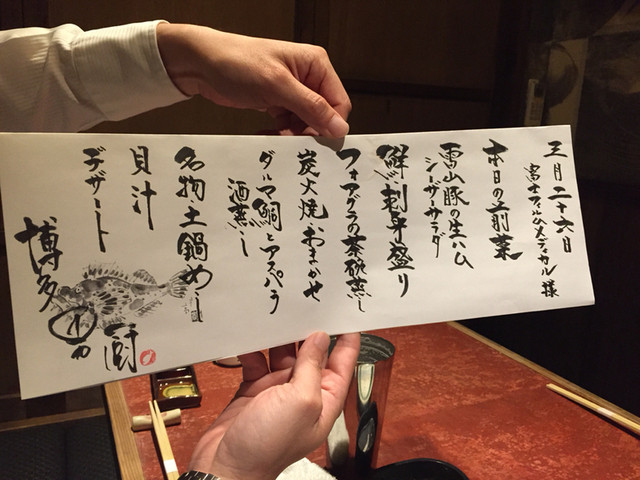 三月二十六日
富士フィルムメディカル様
本日の前菜
雷山豚の生ハム
シーザーサラダ
鮮魚刺身盛り
フォアグラの茶碗蒸し
炭火焼おまかせ
ダルマ鯛とアスパラ
酒蒸し
名物土鍋めし
貝汁
デザート
博多
厨